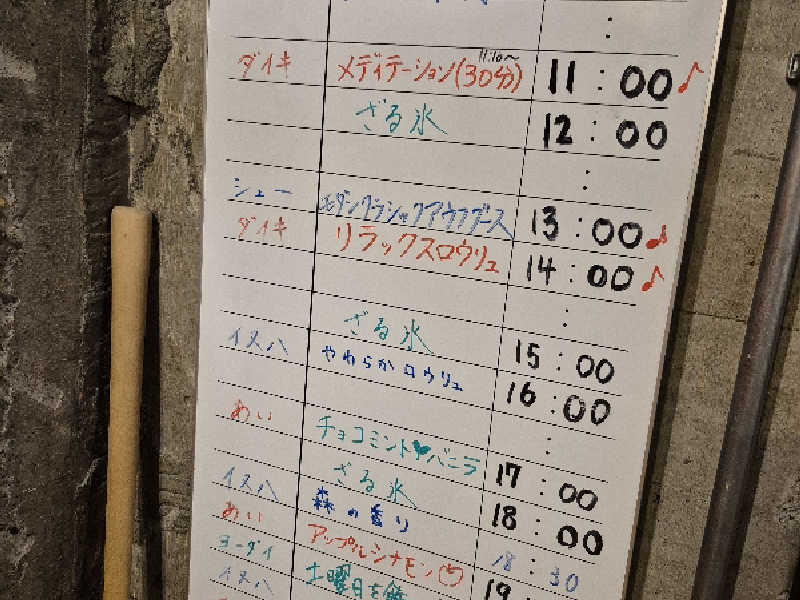 :
11:10〜
ダイキ メディテーション(30分) 11:00♪
ざる氷 12:00
:
シュー モダンクラシックアウフグース 13:00♪
ダイキ リラックスロウリュ 14:00♪
:
ざる氷 15:00
イヌハ やわらかロウリュ 16:00
:
めい チョコミント♥バニラ 17:00
ざる氷 18:00
イヌハ 森の香り 18:30
めい アップルシナモン 19:
ヨーダイ 土曜日を
イヌハ